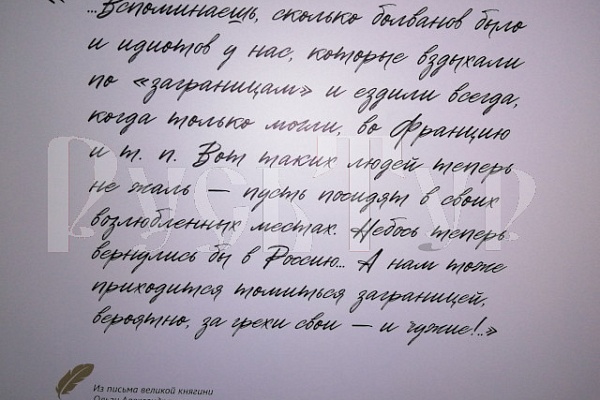 «
...Вспоминаешь, сколько болванов было
и идиотов у нас, которые вздыхали
по «заграницам» и ездили всегда,
когда только могли, во Францию
и т. п. Вот таких людей теперь
не жаль — пусть посидят в своих
возлюбленных местах. Небось теперь
вернулись бы в Россию... А нам тоже
приходится томиться заграницей,
вероятно, за грехи свои — и чужие!..»
РусьТур
Из письма великой княгини
Ольги